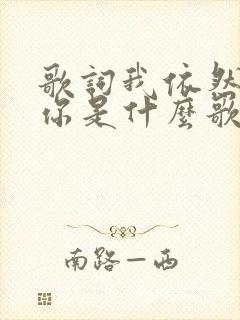 歌詞我依然
你是什麼歌
南路一西